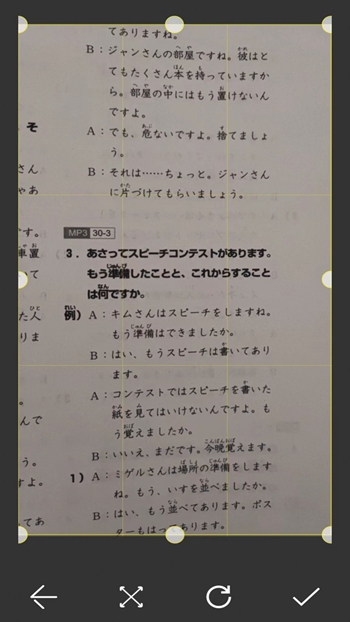 てありますね。
B：ジャンさんの部屋ですね。彼はと
てもたくさん本を持っていますか
ら。部屋の中にはもう置けないん
ですよ。
A：でも、危ないですよ。捨てましょ
う。
B：それは……ちょっと。ジャンさん
に片づけてもらいましょう。
MP3 30-3
3．あさってスピーチコンテストがあります。
もう準備したことと、これからすること
は何ですか。
例）A：キムさんはスピーチをしますね。
もう準備はできましたか。
B：はい、もうスピーチは書いてあり
ます。
A：コンテストではスピーチを書いた
紙を見てはいけないんですよ。も
う覚えましたか。
B：いいえ、まだです。今晩覚えます。
1）A：ミゲルさんは場所の準備をします
ね。もう、いすを並べましたか。
B：はい、もう並べてあります。ポス
ターもはってあります。
そ
さん
ゃあ
です。
車置
て
た人
りま
んで
う。
すよ。
てあ